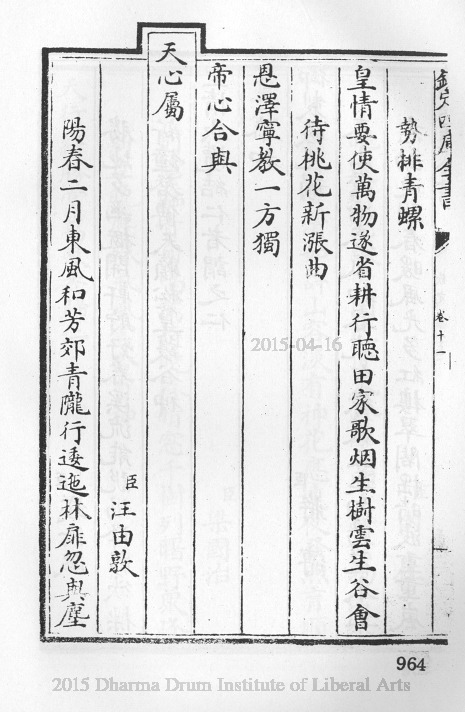 欽定四庫全書
卷十一
勢排青螺
皇情要使萬物遂省耕行聽田家歌烟生樹雲生谷會
待桃花新漲曲
恩澤寧教一方獨
帝心合與
天心屬
臣汪由敦
陽春二月東風和芳郊青隴行逶迤林扉忽與塵
2015-04-16
964
2015 Dharma Drum Institute of Liberal Arts